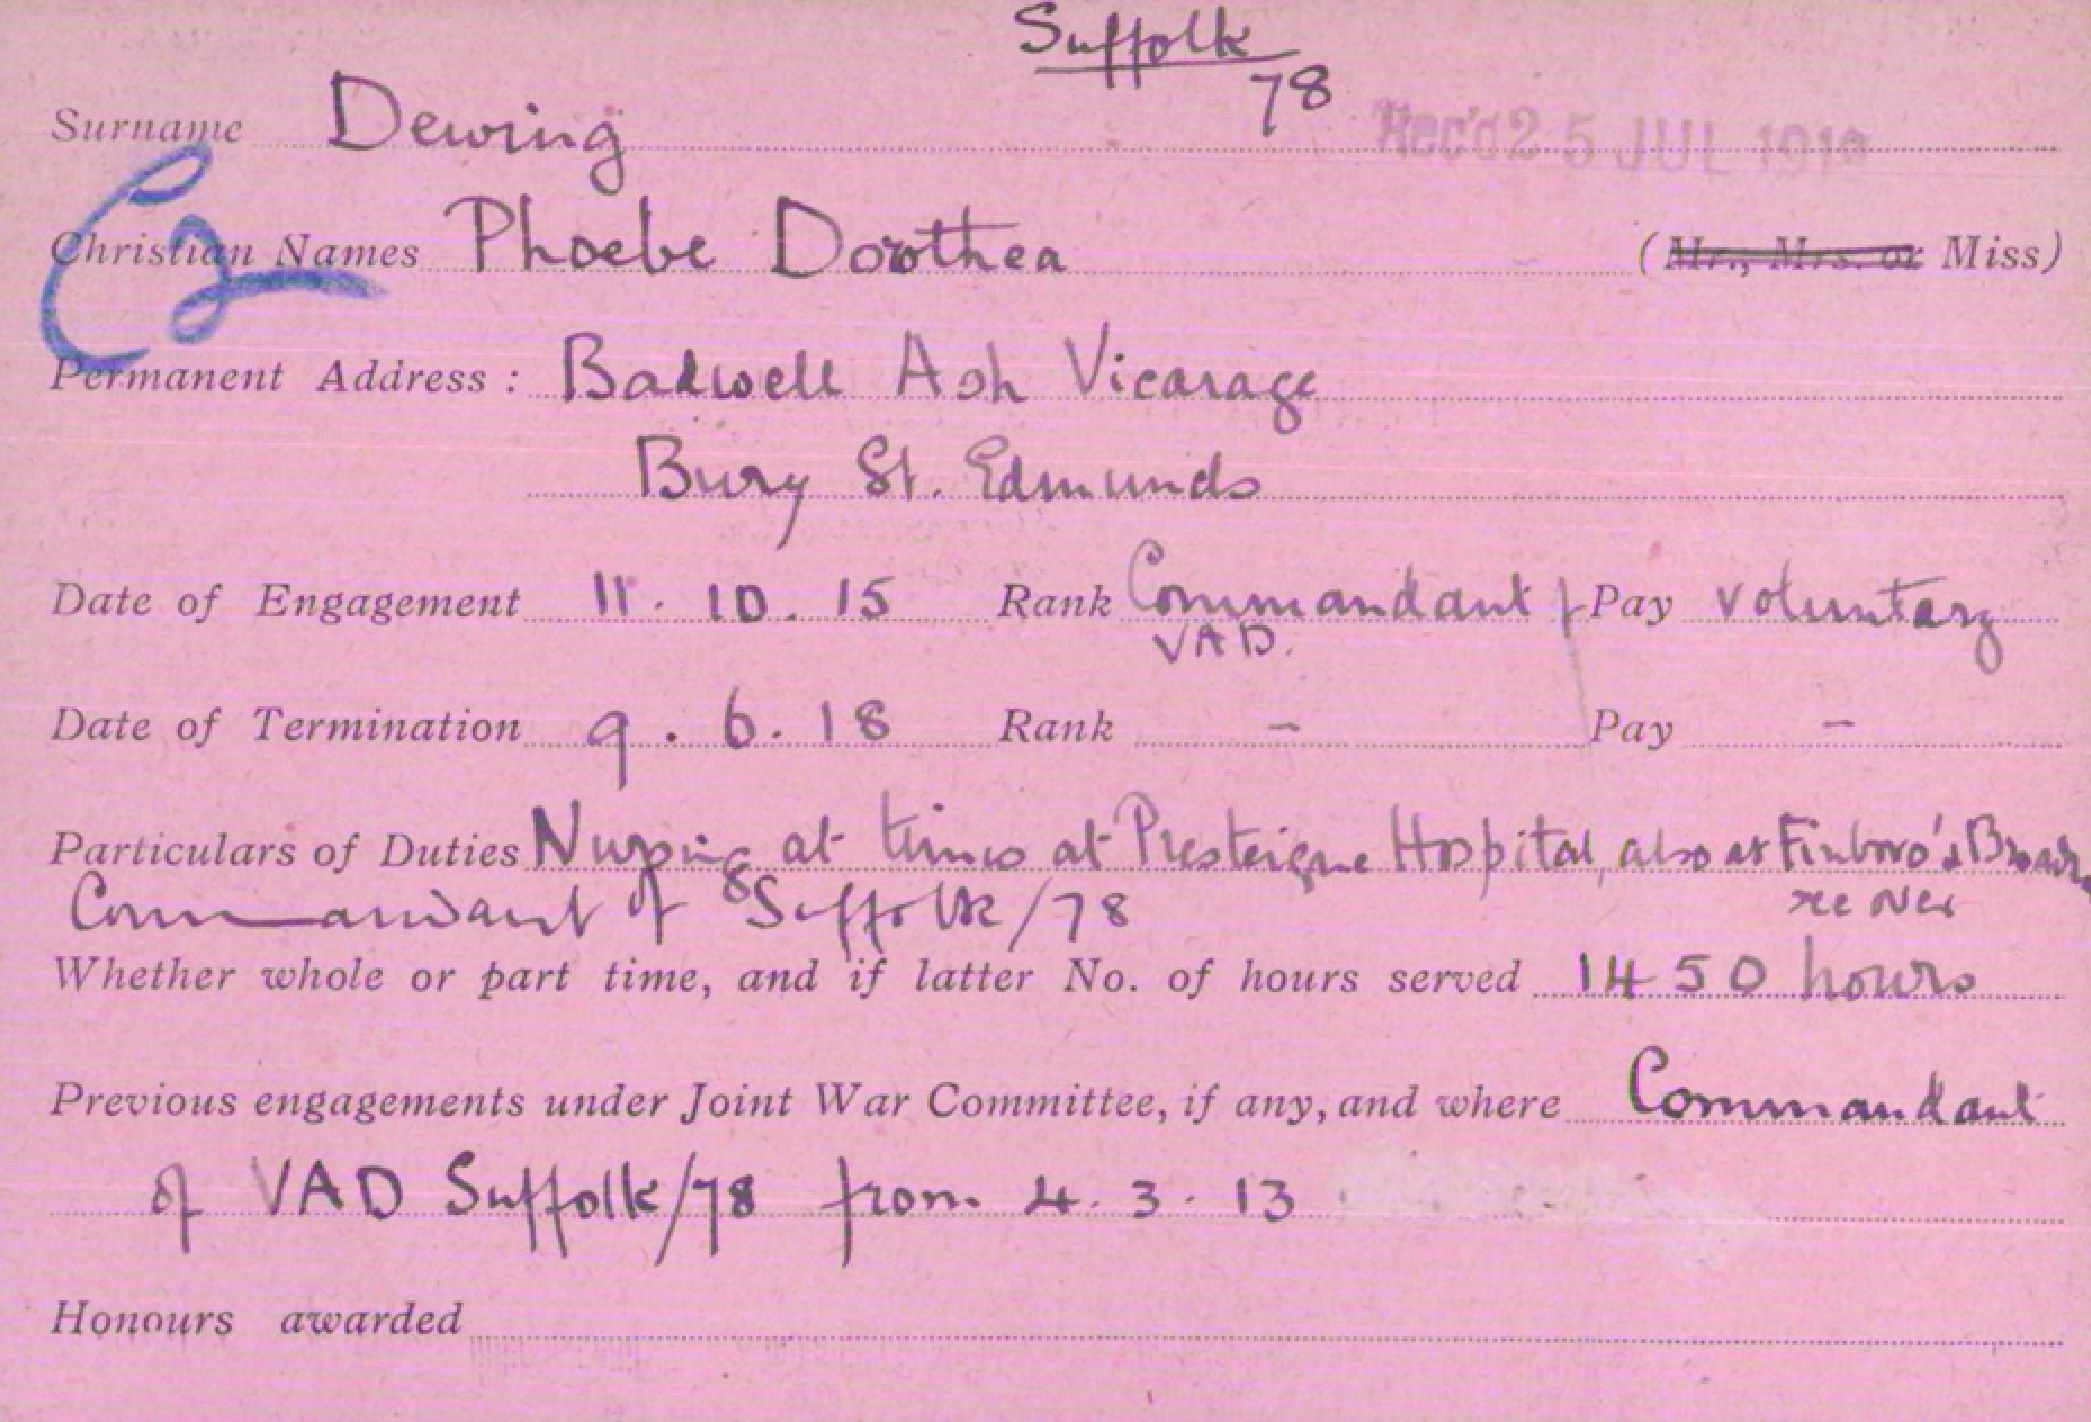 Suffolk
78
Surname Dewing
Rec'd 25 JUL 191
Christian Names Phoebe Dorothea (Mr., Mrs. or Miss)
Permanent Address: Badwell Ash Vicarage
Bury St. Edmunds
Date of Engagement 11. 10. 15 Rank Commandant Pay voluntary
VAD.
Date of Termination 9. 6. 18 Rank - Pay -
Particulars of Duties Nursing at times at Presteigne Hospital, also at Finboro' &
see over
Commandant of Suffolk/78
Whether whole or part time, and if latter No. of hours served 1450 hours
Previous engagements under Joint War Committee, if any, and where Commandant
of VAD Suffolk/78 from 4. 3. 13
Honours awarded